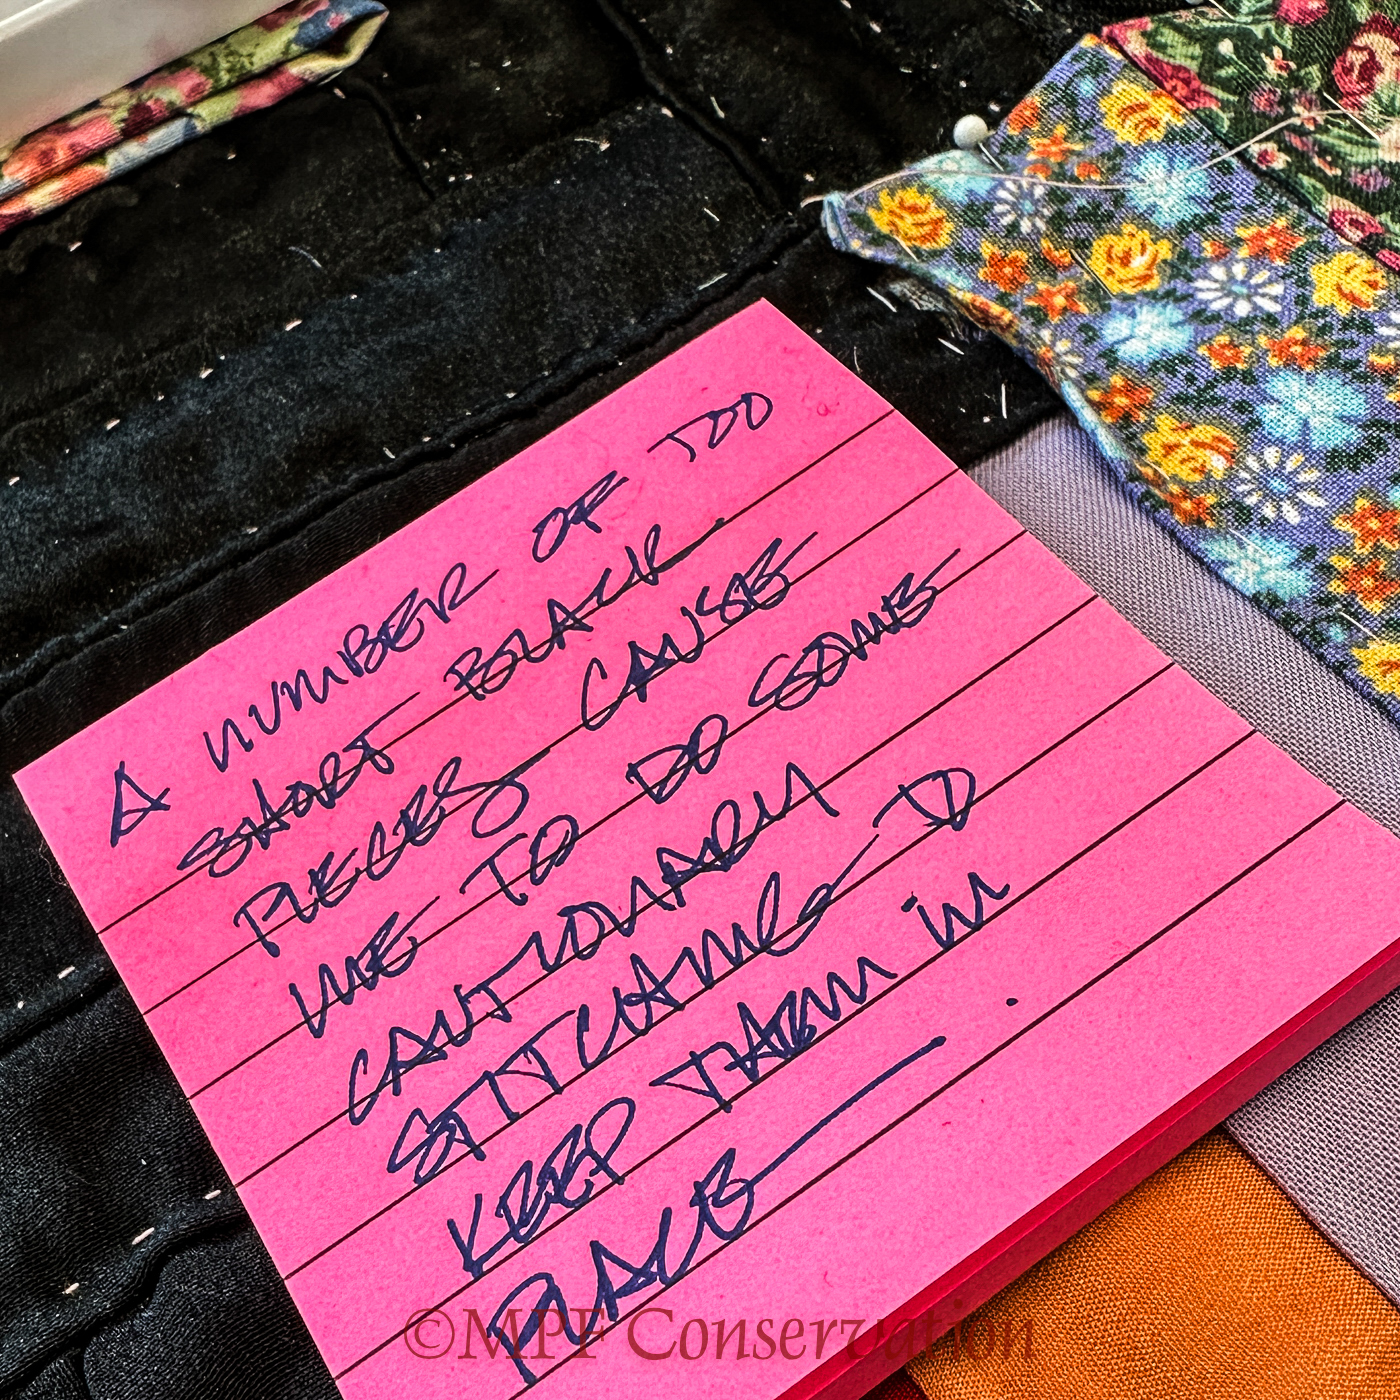 A NUMBER OF TOO
SHORT BLACK
PIECES CAUSE
ME TO DO SOME
CAUTIONARY
STITCHING TO
KEEP THEM IN
PLACE .
©MPF Conservation